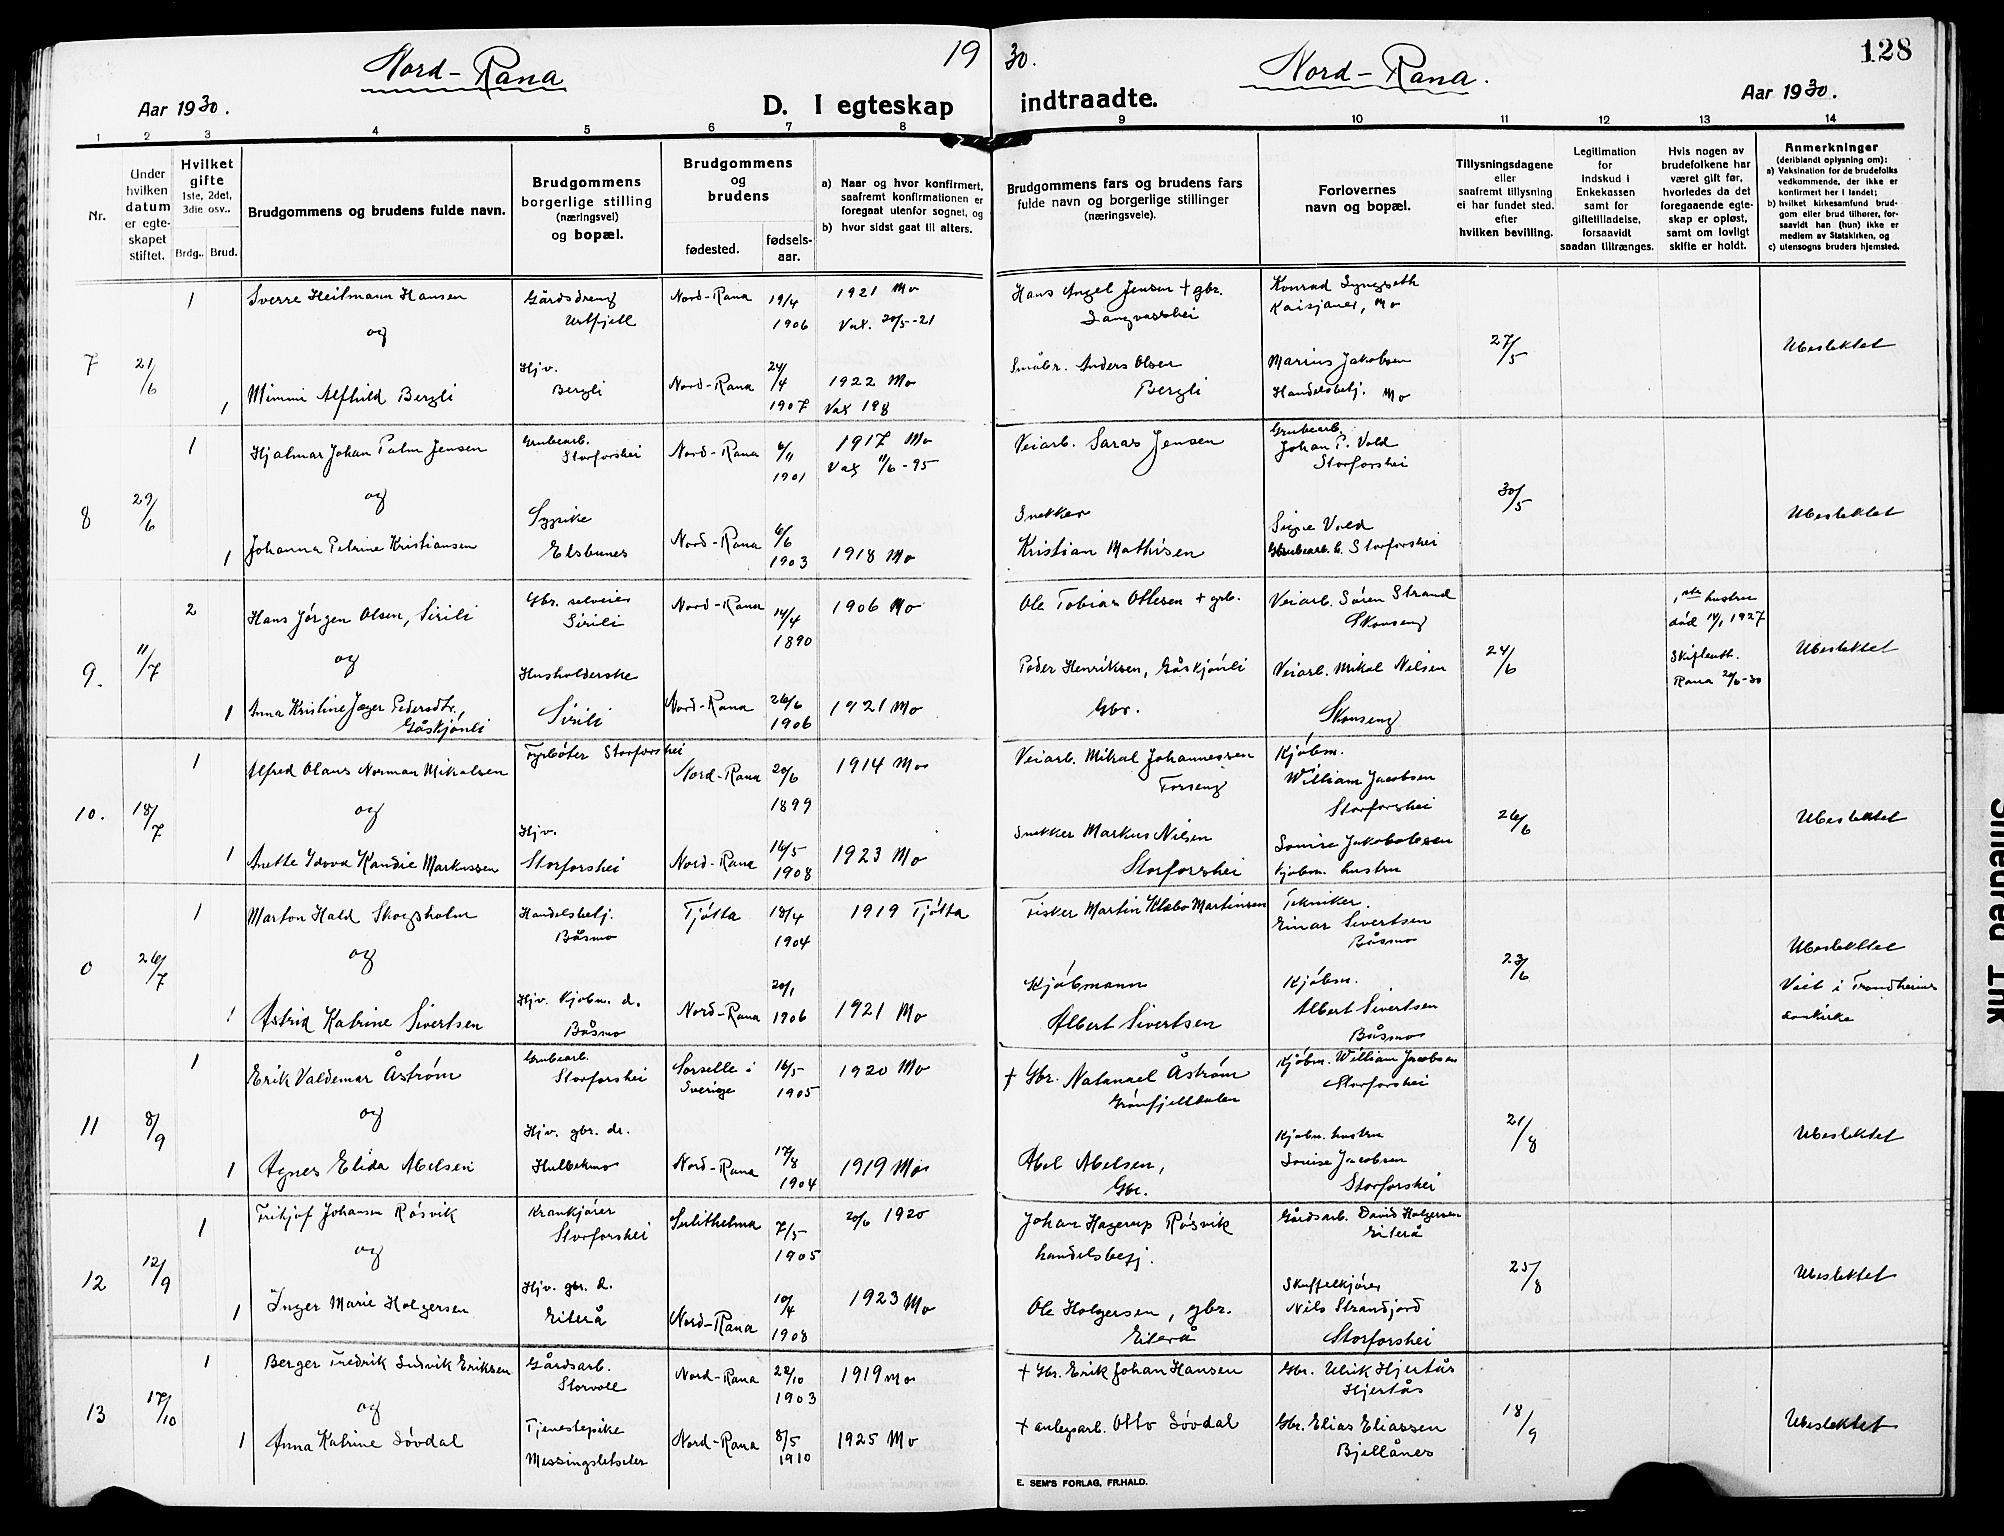 Nord-Rana
19
30.
Nord-Rana.
128
Aar 1930.
D. I egteskap
indtraadte.
Aar 1930.
1 2 3 4 5 6 7 8 9 10 11 12 13 14
Nr.
Under
hvilken
datum
er egte-
skapet
stiftet.
Hvilket
gifte
1ste, 2det,
3die osv..
Brdg.. Brud.
Brudgommens og brudens fulde navn.
Brudgommens
borgerlige stilling
(næringsvei)
og bopæl.
Brudgommens
og
brudens
fødested.
fødsels-
aar.
a) Naar og hvor konfirmert,
saafremt konfirmationen er
foregaat utenfor sognet, og
b) hvor sidst gaat til alters.
Brudgommens fars og brudens fars
fulde navn og borgerlige stillinger
(næringsveie).
Forlovernes
navn og bopæl.
Tillysningsdagene
eller
saafremt tillysning
ei har fundet sted.
efter
hvilken bevilling.
Legitimation
for
Indskud i
Enkekassen
samt for
giftetilladelse,
forsaavidt
saadan tiltrænges.
Hvis nogen av
brudefolkene har
været gift før,
hvorledes da det
foregaaende egte-
skap er opløst,
samt om lovligt
skifte er holdt.
Anmerkninger
(deriblandt oplysning om):
a) Vaksination for de brudefolks
vedkommende, der ikke er
konfirmert her i landet;
b) hvilket kirkesamfund brud-
gom eller brud tilhører, for-
saavidt han (hun) ikke er
medlem av Statskirken, og
c) utensogns bruders hjemsted.
7
21/6
1
Sverre Heitmann Hansen
Gårdsdreng
Urtfjell
Nord-Rana
19/4
1906
1921 Mo
Vax. 20/5-21
Hans Angel Jensen + gbr.
Langvasshei
Konrad Lyngseth
Mo
og
27/5
Ubeslektet
1
Mimmi Alfhild Bergli
Hjv.
Bergli
Nord-Rana
24/4
1907
1922 Mo
Småbr. Anders Olsen
Bergli
Marius Jakobsen
Handelsbetj. Mo
8
29/6
1
Hjalmar Johan Palm Jensen
Grubearb.
Storforshei
Nord-Rana
6/11
1901
1917 Mo
Vax 11/6-95
Veiarb. Saras Jensen
Grubearb.
Johan P. Vold
Storforshei
og
30/5
Ubeslektet
1
Johanna Petrine Kristiansen
Sypike
Nord-Rana
6/6
1903
1918 Mo
Snekker
Kristian Mathisen
Signe Vold
Storforshei
9.
11/7
2
Hans Jørgen Olsen, Sirili
Gbr. selveier
Sirili
Nord-Rana
14/4
1890
1906 Mo
Ole Tobias Ottesen + grb.
Veiarb. Søren Strand
Skonseng
1ste hustru
død 14/1 1927
og
24/6
Skifteatt.
Rana 20/6-30
Ubeslektet
1
Anna Kristine Jæger Pedersdtr.,
Gåskjønli
Husholderske
Sirili
Nord-Rana
26/6
1906
1921 Mo
Peder Henriksen, Gåskjønli
Gbr.
Veiarb. Mikal Nilsen
Skonseng
10.
18/7
1
Alfred Olaus Norman Mikalsen
Fyrbøter Storforshei
Nord-Rana
20/6
1899
1914 Mo
Veiarb. Mikal Johannessen
Forseng
Kjøbm.
William Jacobsen
Storforshei
og
26/6
Ubeslektet
1
Markussen
Hjv.
Storforshei
Nord-Rana
16/5
1908
1923 Mo
Snekker Markus Nilsen
Storforshei
Louise Jakobsen
Kjøbm. hustru
0
26/7
1
Marton Hald Skogsholm
Handelsbetj.
Båsmo
Tjøtta
18/4
1904
1919 Tjøtta
Fisker Martin Klæbo Martinsen
Tekniker.
Einar Sivertsen
Båsmo
og
23/6
Ubeslektet
Viet i Trondheims
domkirke
1
Astrid Katrine Sivertsen
Hjv. Kjøbm. d.
Båsmo
Nord-Rana
20/1
1906
1921 Mo
Kjøbmann
Albert Sivertsen
Kjøbm.
Albert Sivertsen
Båsmo
11
8/9
1
Erik Valdemar Åstrøm
Grubearb.
Storforshei
Sorselle i
Sverige
16/5-
1905
1920 Mo
+ Gbr. Natanael Åstrøm
Grønfjelldalen
Kjøbm. William Jacobsen
Storforshei
og
21/8
Ubeslektet
1
Agnes Elida Abelsen
Hjv. gbr. dr.
Hulbekmo
Nord-Rana
17/8
1904
1919 Mo
Abel Abelsen,
Gbr.
Kjøbm. hustru
Louise Jacobsen
Storforshei
12
12/9
1
Fritjof Johansen Røsvik
Krankjører
Storforshei
Sulithelma
7/5
1905
20/6 1920
Johan Hagerup Røsvik
handelsbetj.
Gårdsarb. David Holgersen
Eiterå
og
25/8
Ubeslektet
1
Inger Marie Holgersen
Hjv. gbr. d.
Eiterå
Nord-Rana
10/4
1908
1923 Mo
Ole Holgersen, gbr.
Eiterå
Skuffelkjører
Nils Strandjord
Storforshei
13
17/10
1
Berger Fredrik Ludvik Eriksen
Gårdsarb.
Storvoll
Nord-Rana
22/10
1903
1919 Mo
+ Gbr. Erik Johan Hansen
Gbr. Ulrik Hjertås
Hjertås
og
18/9
Ubeslektet
1
Anna Katrine Søvdal
Tjenestepike
Messingsletseler
Nord-Rana
8/5
1910
1925 Mo
+ anlegsarb. Otto Søvdal
Gbr. Elias Eliassen
Bjellånes
E. SEM'S FORLAG, FR.HALD.